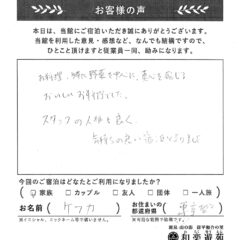 お客様の声
本日は、当館にご宿泊いただき誠にありがとうございます。
当館を利用した意見・感想など、なんでも結構ですので、
ひとこと頂けますと従業員一同、励みになります。
お料理、特に野菜
おいしいお料理でした。
スタッフの人柄も良く、
気持ちの良い
今回のご宿泊はどなたとご利用になりましたか?
家族 □カップル □友人 □団体 □一人旅
お名前(ケフカ)
お住まいの都道府県(東京都)
※イニシャル、ニックネーム等で構いません。
和楽遊苑